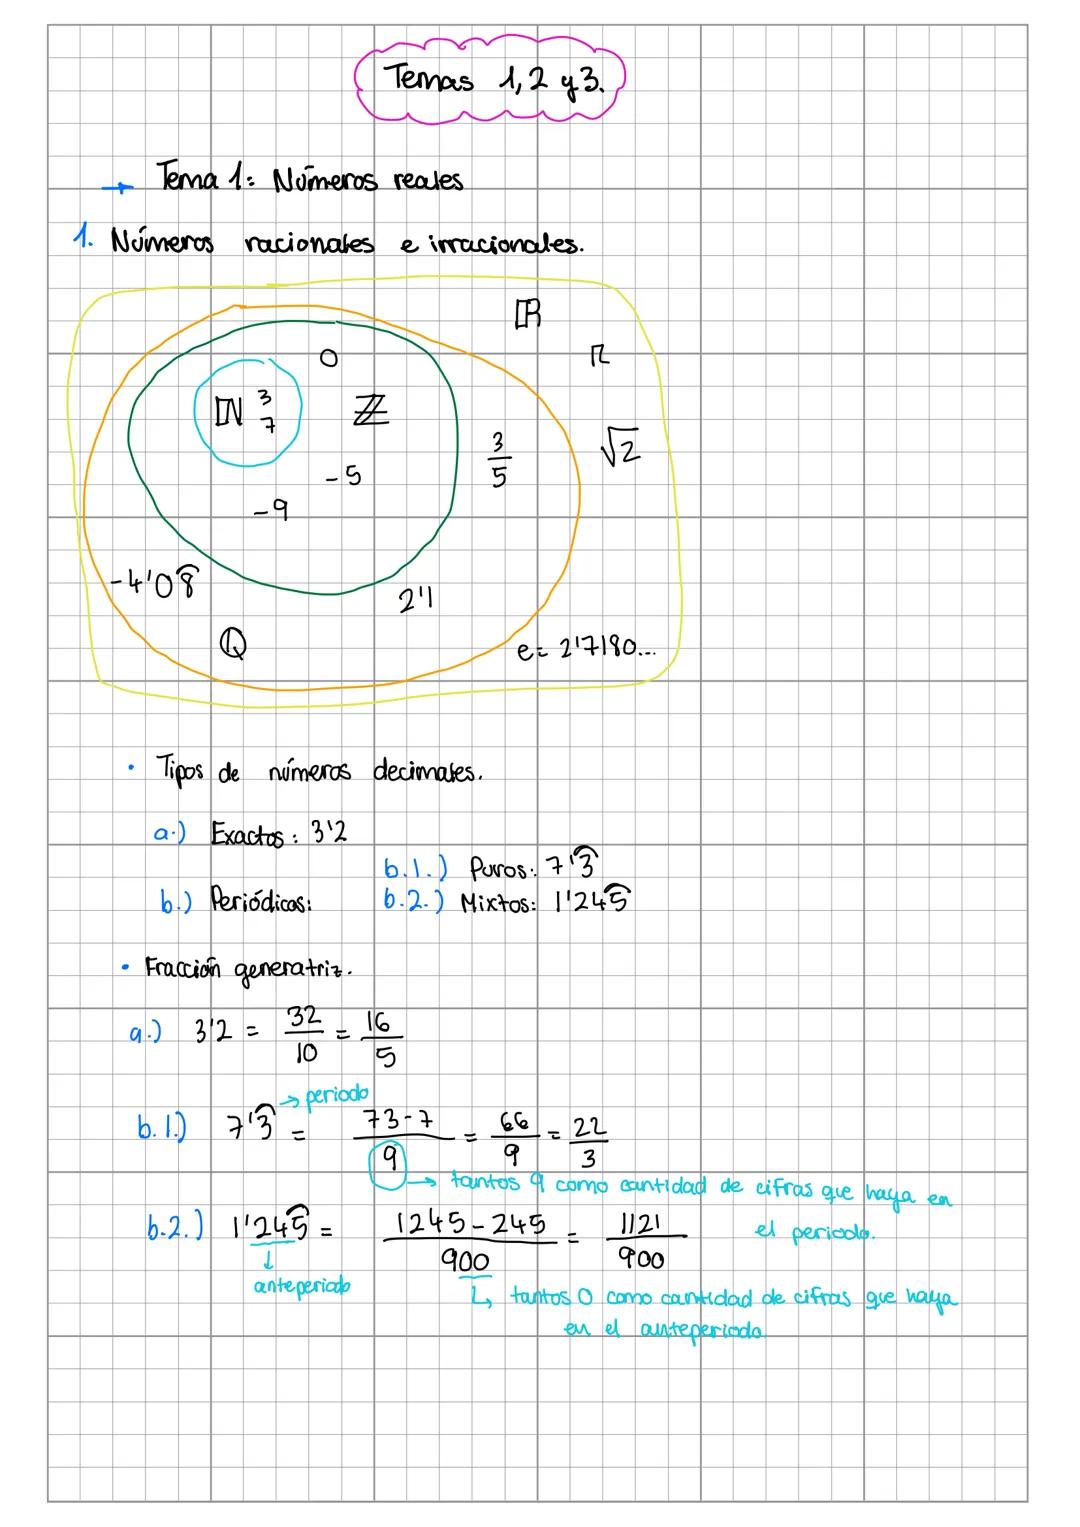 Temas 1, 2 y 3.
→ Tema 1: Números reales
1. Números racionales e irracionales.
ℝ
0
π
ℕ 3
7
ℤ
√2
3/5
-5
-9
-4'08̂
2'1
ℚ
e = 2'7180...
• Tipos de números decimales.
a.) Exactos: 3'2
b.1.) Puros: 7'3̂
b.) Periódicos:
b.2.) Mixtos: 1'245̂
• Fracción generatriz.
a.) 3'2 = 32/10 = 16/5
→ periodo
b.1.) 7'3̂ = 73-7/9 = 66/9 = 22/3
→ tantos 9 como cantidad de cifras que haya en
el periodo.
b.2.) 1'245̂ = 1245-245/900 = 1121/900
↓
anteperiodo
↳ tantos 0 como cantidad de cifras que haya
en el anteperiodo